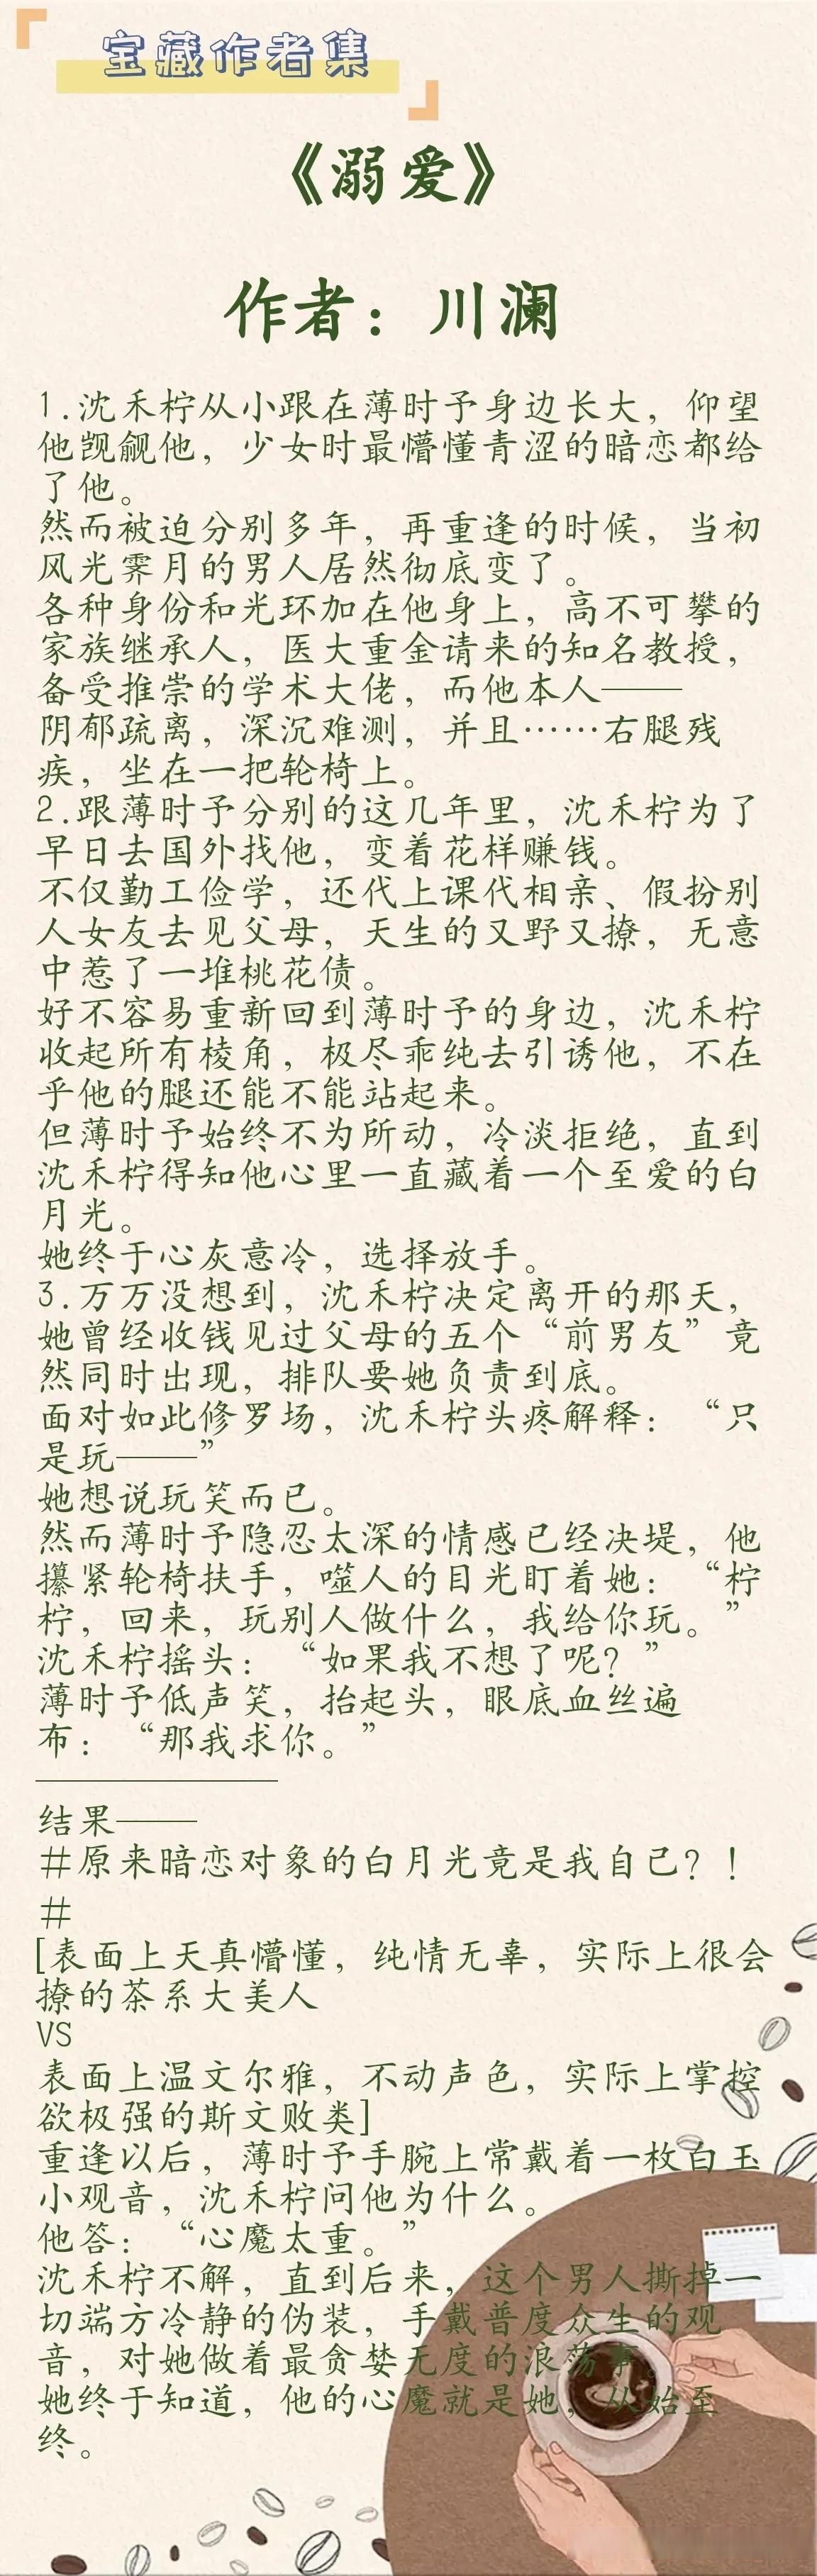 宝藏作者集
《溺爱》
作者：川澜
1.沈禾柠从小跟在薄时予身边长大，仰望
他觊觎他，少女时最懵懂青涩的暗恋都给
了他。
然而被迫分别多年，再重逢的时候，当初
风光霁月的男人居然彻底变了。
各种身份和光环加在他身上，高不可攀的
家族继承人，医大重金请来的知名教授，
备受推崇的学术大佬，而他本人——
阴郁疏离，深沉难测，并且……右腿残
疾，坐在一把轮椅上。
2.跟薄时予分别的这几年里，沈禾柠为了
早日去国外找他，变着花样赚钱。
不仅勤工俭学，还代上课代相亲、假扮别
人女友去见父母，天生的又野又撩，无意
中惹了一堆桃花债。
好不容易重新回到薄时予的身边，沈禾柠
收起所有棱角，极尽乖纯去引诱他，不在
乎他的腿还能不能站起来。
但薄时予始终不为所动，冷淡拒绝，直到
沈禾柠得知他心里一直藏着一个至爱的白
月光。
她终于心灰意冷，选择放手。
3.万万没想到，沈禾柠决定离开的那天，
她曾经收钱见过父母的五个“前男友”竟
然同时出现，排队要她负责到底。
面对如此修罗场，沈禾柠头疼解释：“只
是玩——”
她想说玩笑而已。
然而薄时予隐忍太深的情感已经决堤，他
攥紧轮椅扶手，噬人的目光盯着她：“柠
柠，回来，玩别人做什么，我给你玩。”
沈禾柠摇头：“如果我不想了呢？”
薄时予低声笑，抬起头，眼底血丝遍
布：“那我求你。”
——————
结果——
＃原来暗恋对象的白月光竟是我自己？！
＃
[表面上天真懵懂，纯情无辜，实际上很会
撩的茶系大美人
VS
表面上温文尔雅，不动声色，实际上掌控
欲极强的斯文败类]
重逢以后，薄时予手腕上常戴着一枚白玉
小观音，沈禾柠问他为什么。
他答：“心魔太重。”
沈禾柠不解，直到后来，这个男人撕掉一
切端方冷静的伪装，手戴普度众生的观
音，对她做着最贪婪无度的浪荡事。
她终于知道，他的心魔就是她，从始至
终。